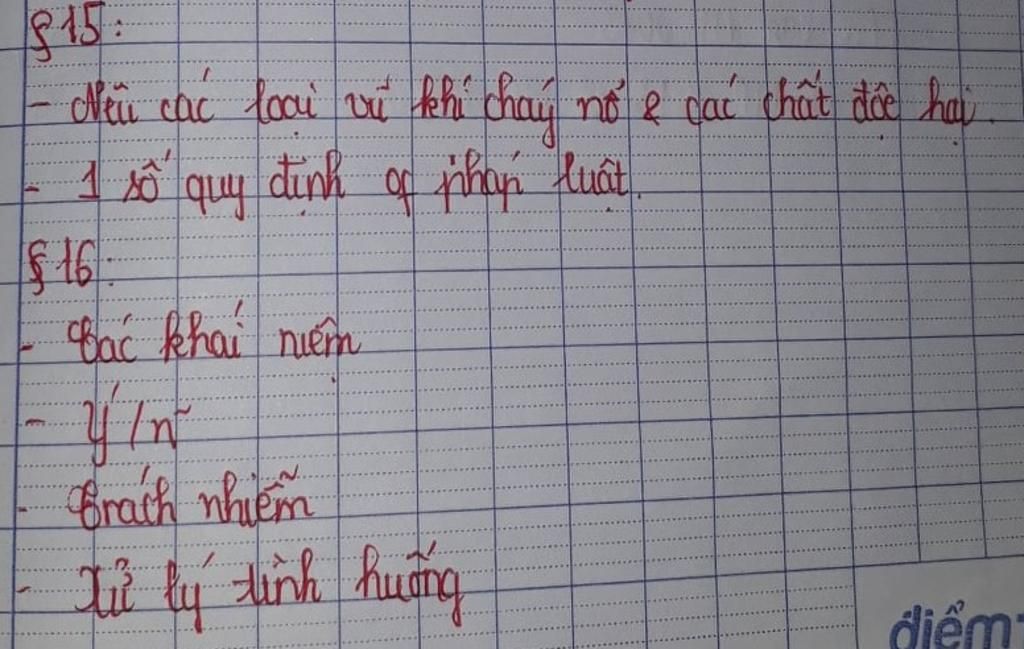 § 15:
- Nêu các loại vũ khí cháy nổ & các chất độc hại.
- 1 số quy định of pháp luật.
§ 16:
- Các khái niệm
- Ý /n~
- Trách nhiễm
- Xử lý tình huống
điểm